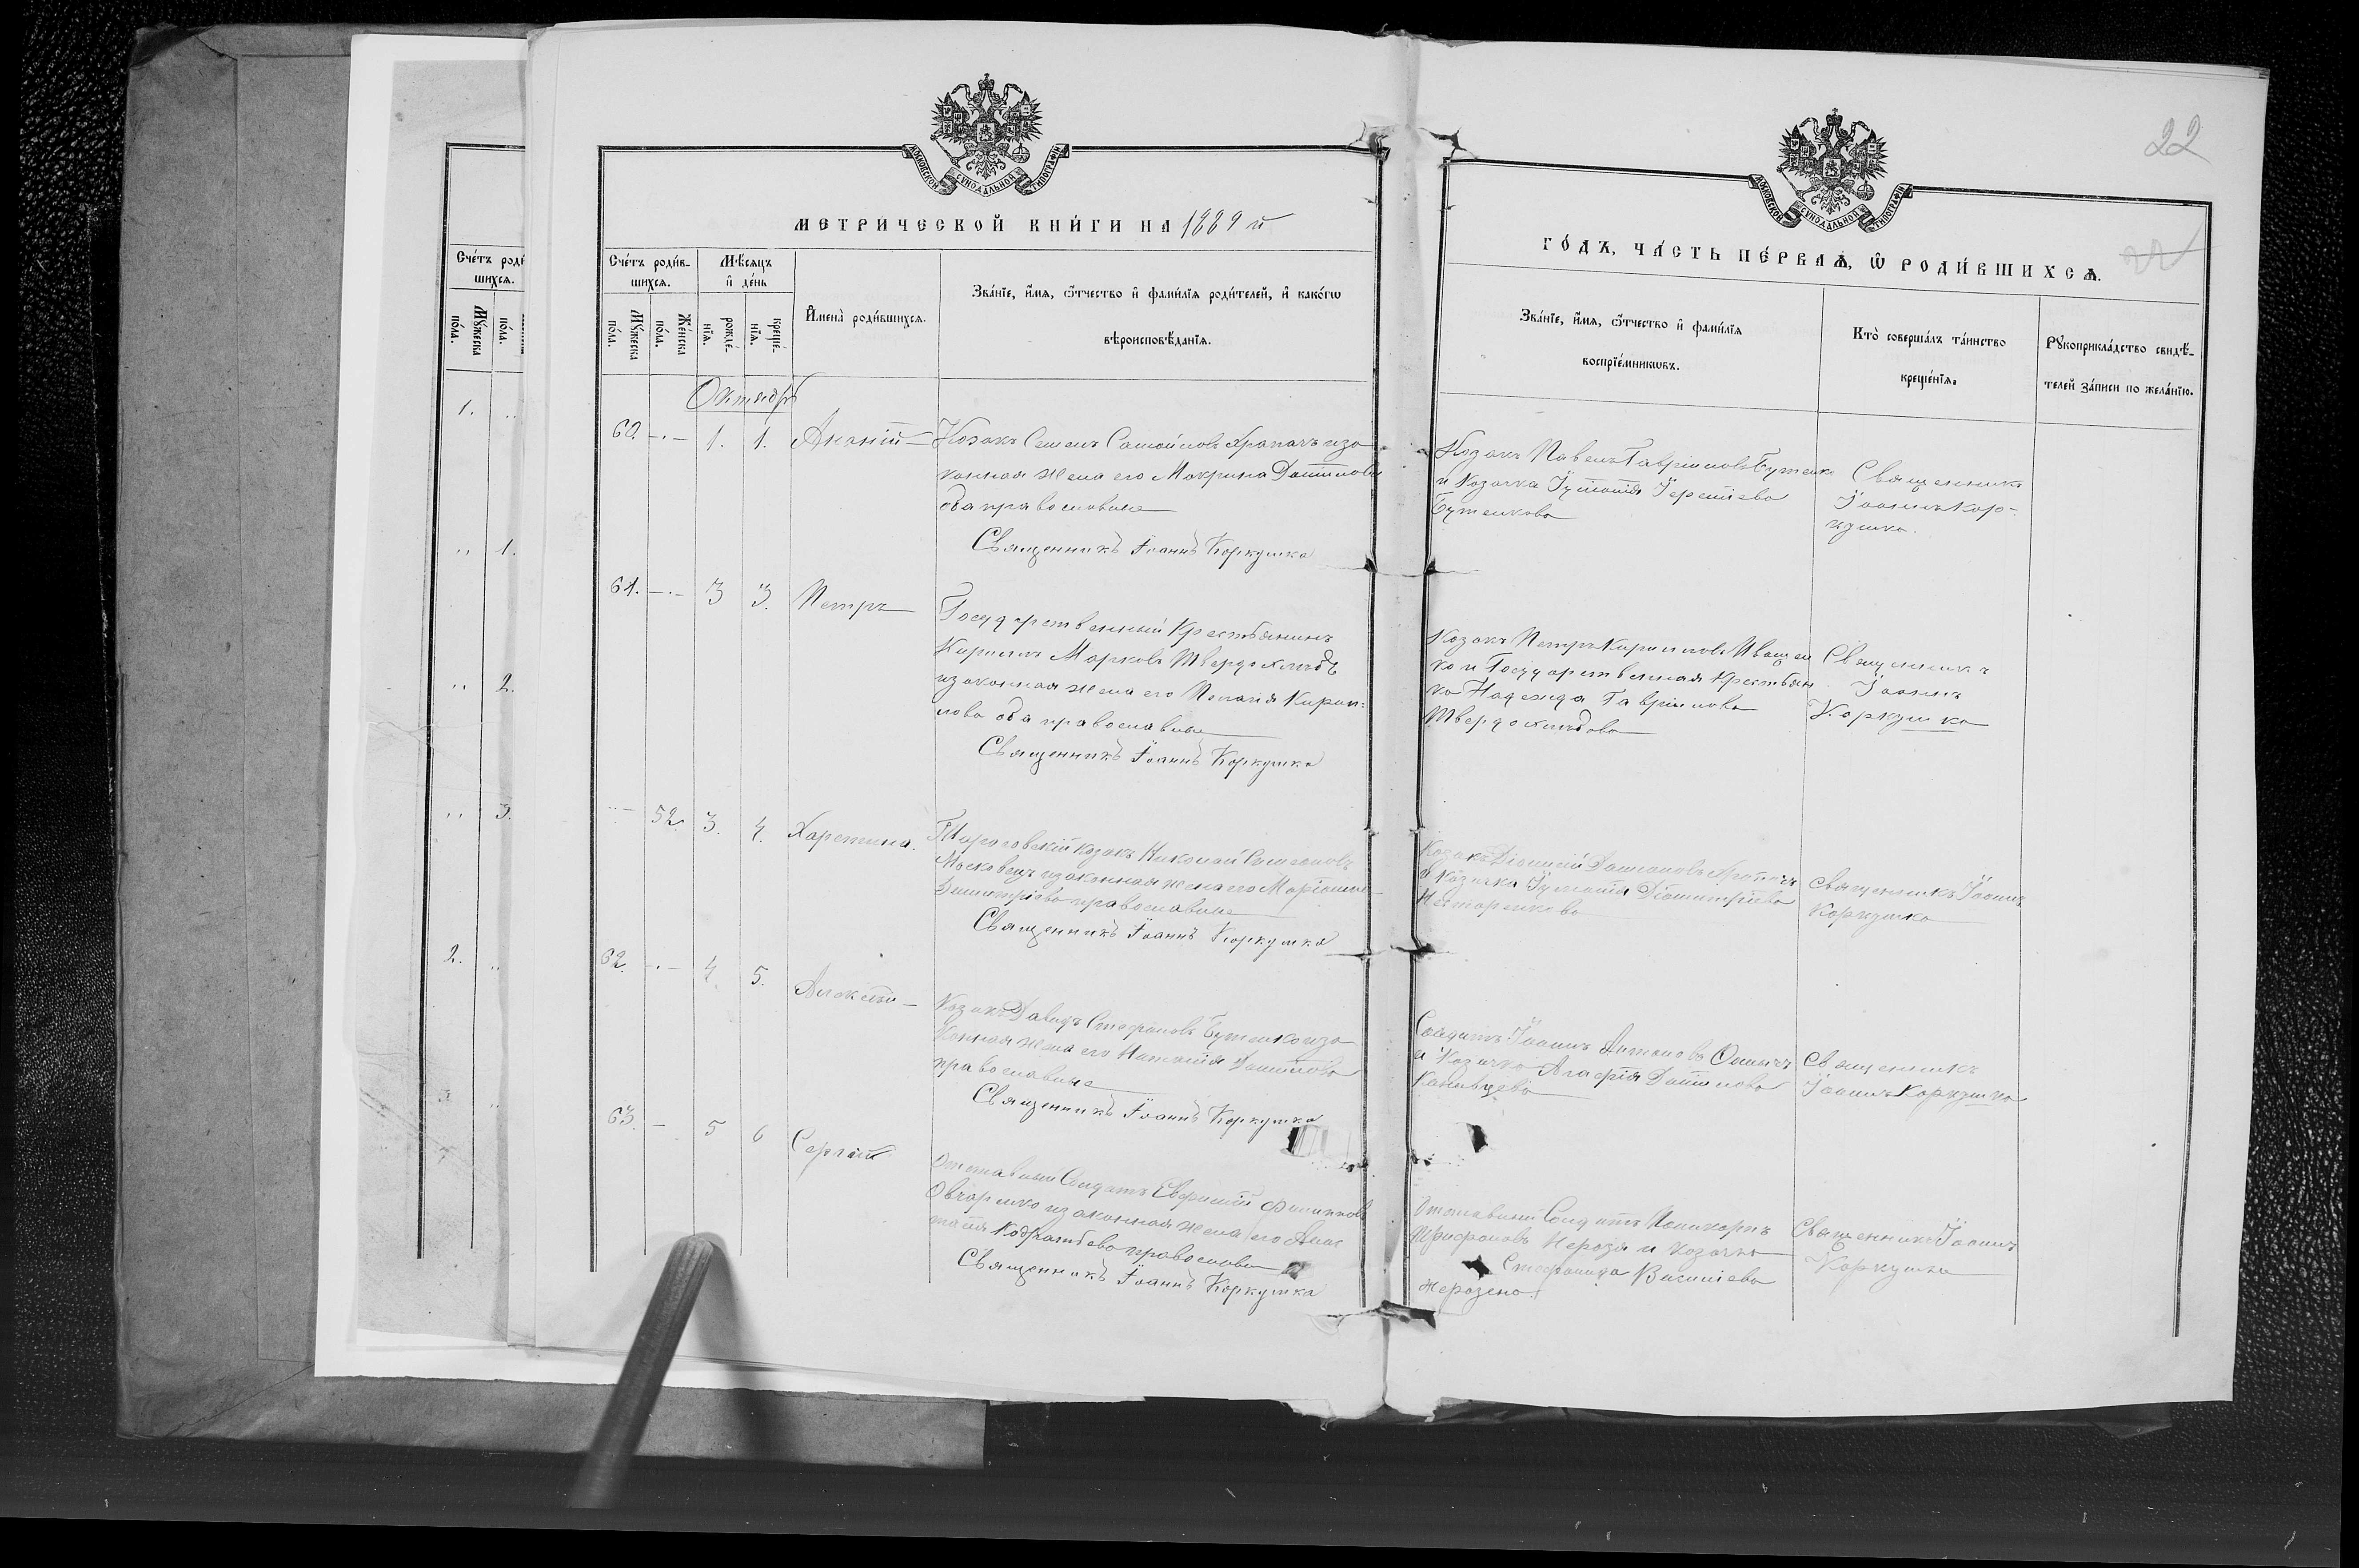 22
МОСКОВСКОЙ СУНОДАЛЬНОЙ ТИПОГРАФІИ
МЕТРИЧЕСКОЙ КНИГИ НА 1889 й
МОСКОВСКОЙ СУНОДАЛЬНОЙ ТИПОГРАФІИ
ГОДЪ, ЧАСТЬ ПЕРВАѦ, Ѿ РОДИВШИХСѦ.
Счетъ роди
шихсѧ.
Мужеска пола.
пола.
1.
„ 1.
„ 2.
„ 3.
2. „
Счетъ родив-
шихсѧ.
Мужеска пола.
Женска пола.
Мѣсѧцъ и день
рожденїѧ.
крещенїѧ.
Имена родившихсѧ.
Званїе, имѧ, ѿчество и фамилїѧ родителей, и какогѡ
вѣроисповѣданїѧ.
Званїе, имѧ, ѿчество и фамилїѧ
воспрїемникѡвъ.
Кто совершалъ таинство
крещенїѧ.
Рукоприкладство свидѣ-
телей записи по желанїю.
Октябрь
60. 1. 1. Ананій
Козакъ Семенъ Самойловъ Храпачъ иза
конная жена его Макрина Даніилова
оба православные
Священникъ Іоаннъ Коркушка
Козакъ Павелъ Гавріиловъ Бутенко
и Козачка
Бутенкова
Священникъ
Іоаннъ Кор-
кушка.
61. 3 3. Петръ
Государственный Крестьянинъ
Кириллъ Марковъ Твердохлѣбъ
изаконная жена его Пелагія Кирил-
лова оба православные
Священникъ Іоаннъ Коркушка
Козакъ Петръ Кирилловъ Иващен
ко и Государственная Крестьян
ка Надежда Гавріилова
Твердохлѣбова
Священникъ
Іоаннъ
Коркушка
52. 3. 4. Харетина.
Козакъ Николай
Московецъ изаконная жена его Маріанна
Димитріева православные
Священникъ Іоаннъ Коркушка
Козакъ
и Козачка Димитріева
Нестеренкова
Священникъ Іоаннъ
Коркушка
62. 4. 5. Алексѣй
Козакъ Давидъ Стефановъ Бутенко иза
конная жена его Наталія Даніилова
православные
Священникъ Іоаннъ Коркушка
Солдатъ Іоаннъ Антоновъ
и Козачка Агафія Даніилова
Священникъ
Іоаннъ Коркушка
63. 5 6 Сергій
Отставный Солдатъ Евфимій Филипповъ
Овчаренко изаконная жена его Анас
тасія Кодратьева православные
Священникъ Іоаннъ Коркушка
Отставный Солдатъ Поликарпъ
Трифоновъ Нерозя и козачка
Стефанида Василіева
Нерозена.
Священникъ Іоаннъ
Коркушка